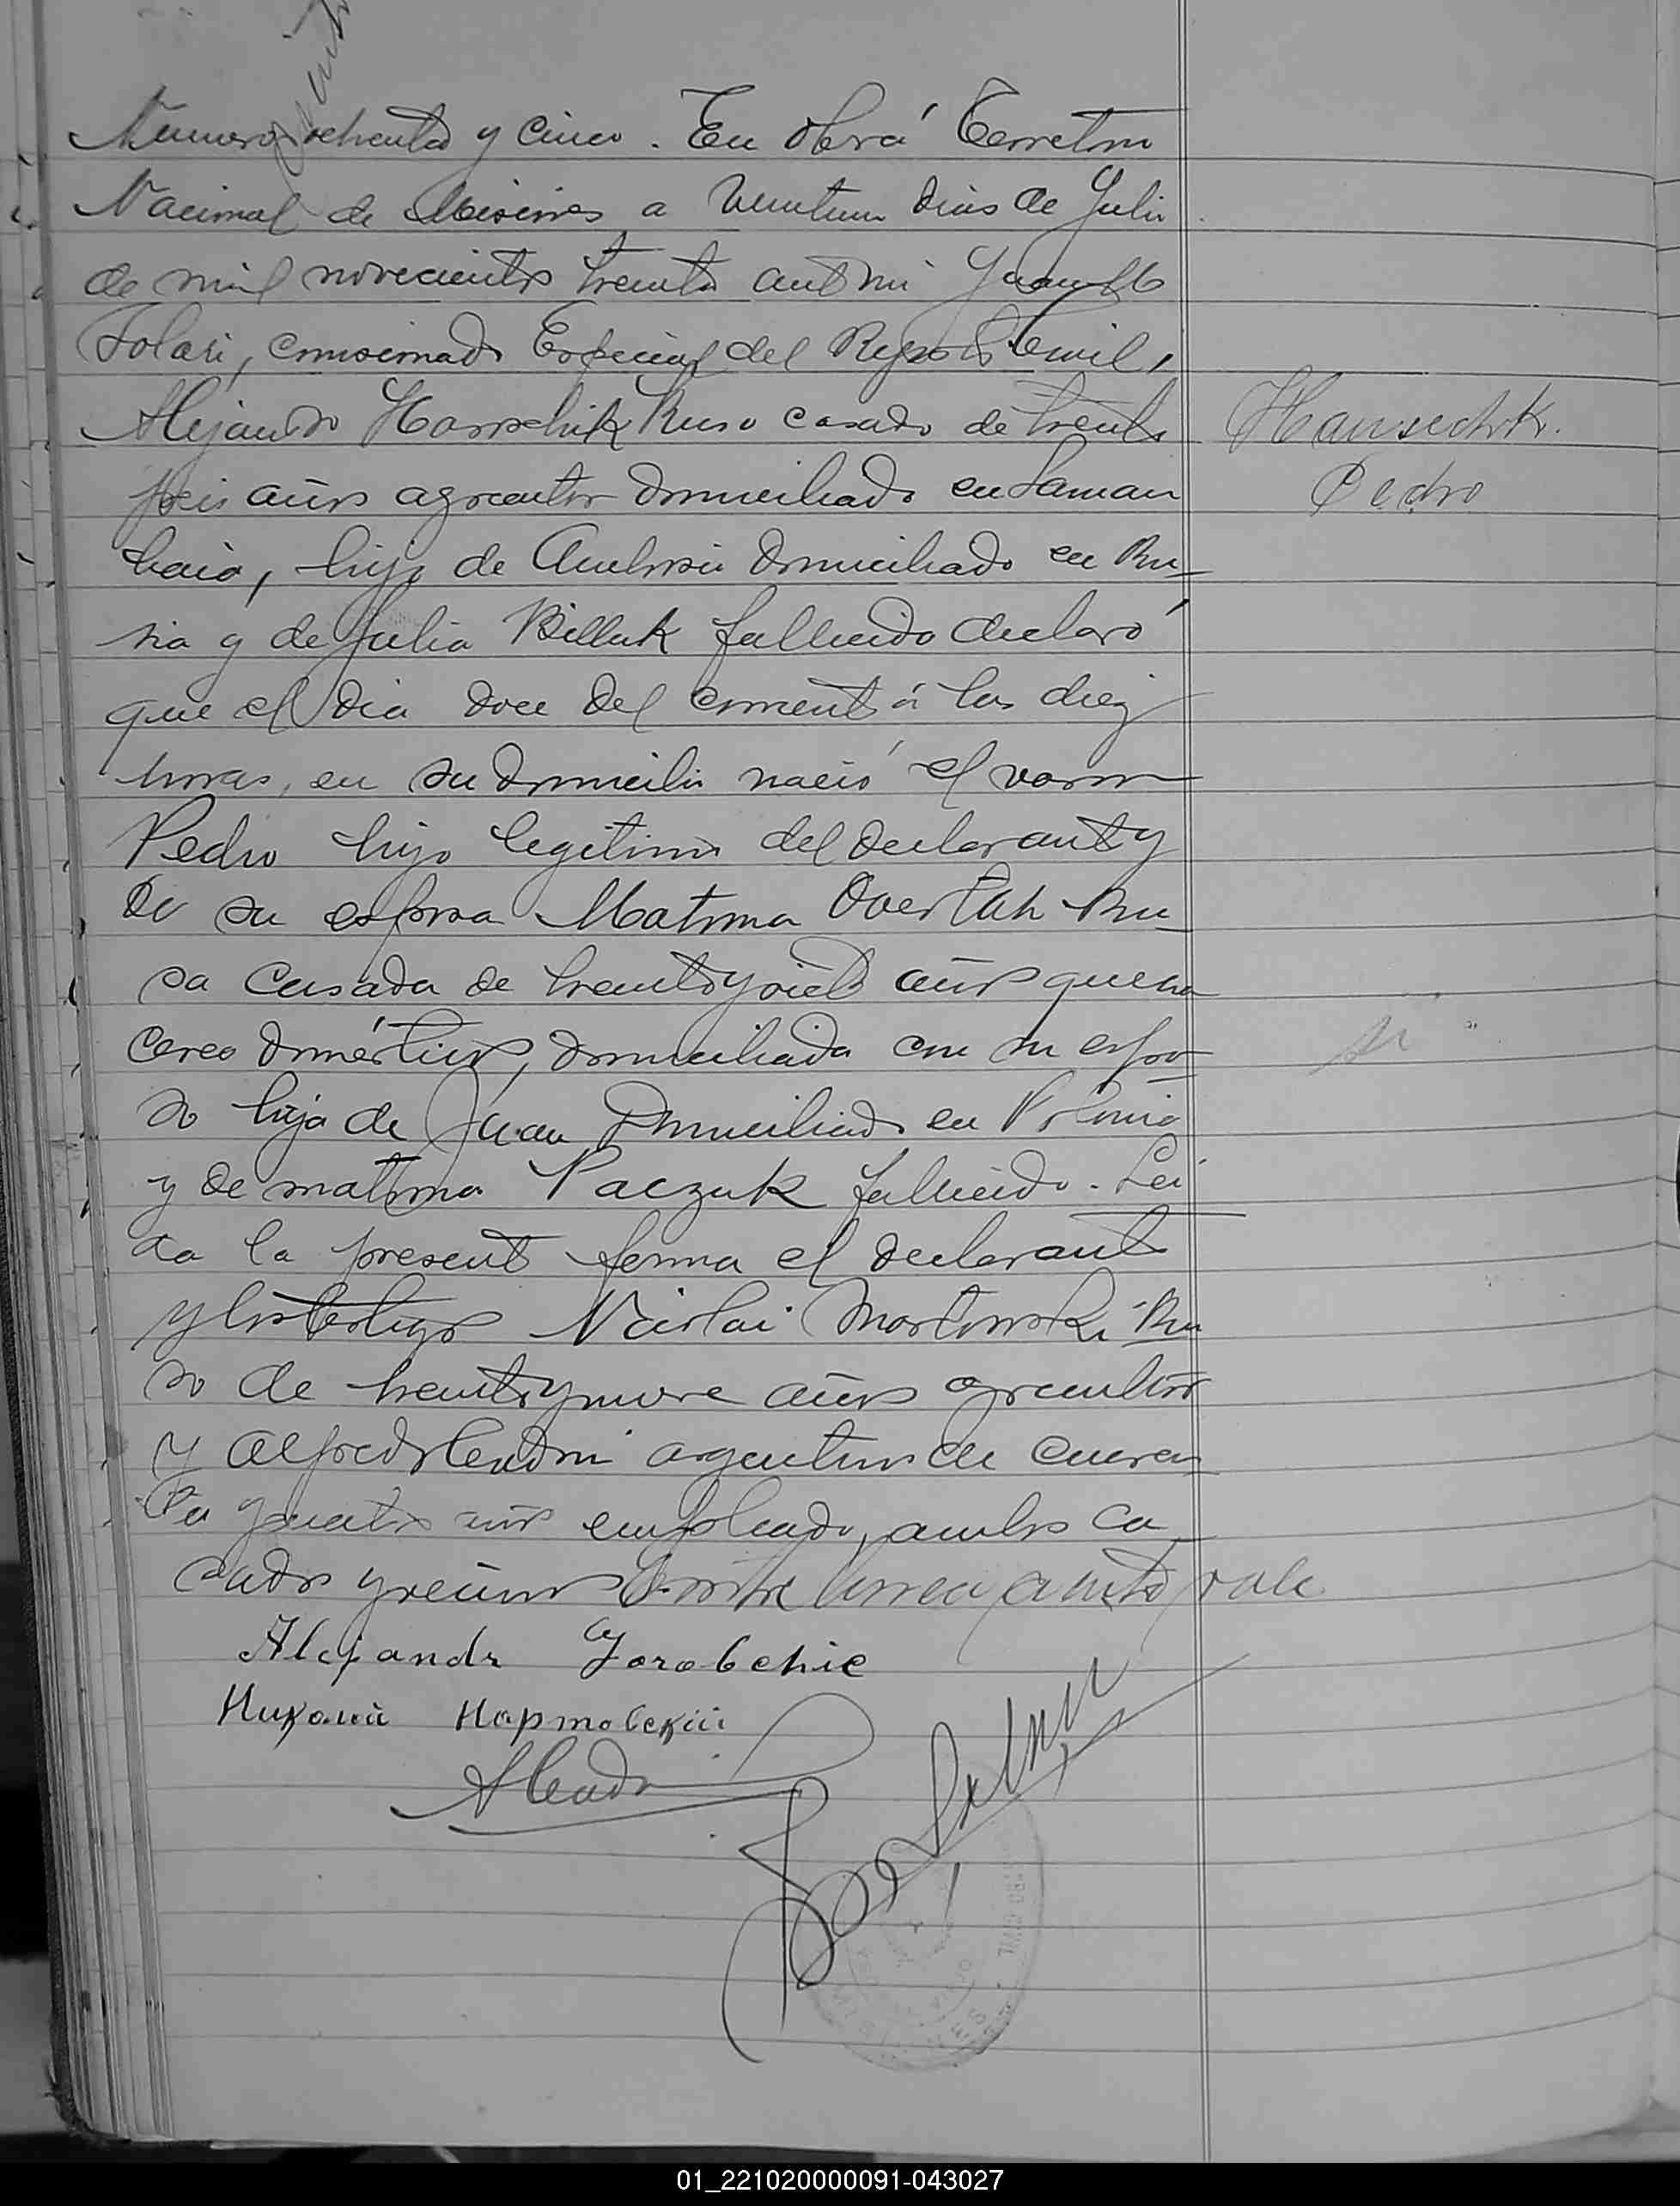 Numero ochenta y cinco. En Oberá Territorio
Nacional de Misiones a veintiun dias de Julio
de mil novecientos treinta ante mi Juan
Solari, comisionado Especial del Registro Civil,
Alejandro Ruso casado de treinta
Hansechik.
seis años agricultor domiciliado en Saman
Pedro
baia, hijo de Ambrosio domiciliado en Ru-
sia y de Julia Billuk fallecido declaró
que el dia doce del corriente á las diez
horas, en su domicilio nació el varon
Pedro hijo legitimo del declarante y
de su esposa Matrona Ru-
sa casada de treinta y siete años queha
ceres domésticos, domiciliada con su espo-
so hija de Juan domiciliado en Polonia
y de matrona Paczuk fallecido. Lei
da la presente firma el declarante
y los testigos Nicolai Mortowski Ru
so de treinta y nueve años agricultor
y Alfredo argentino de cuaren
ta y cuatro años empleado, ambos ca
sados y vecinos Entre linea vale
Alejandr Jarobchic
Николай Нартовский
01_221020000091-043027